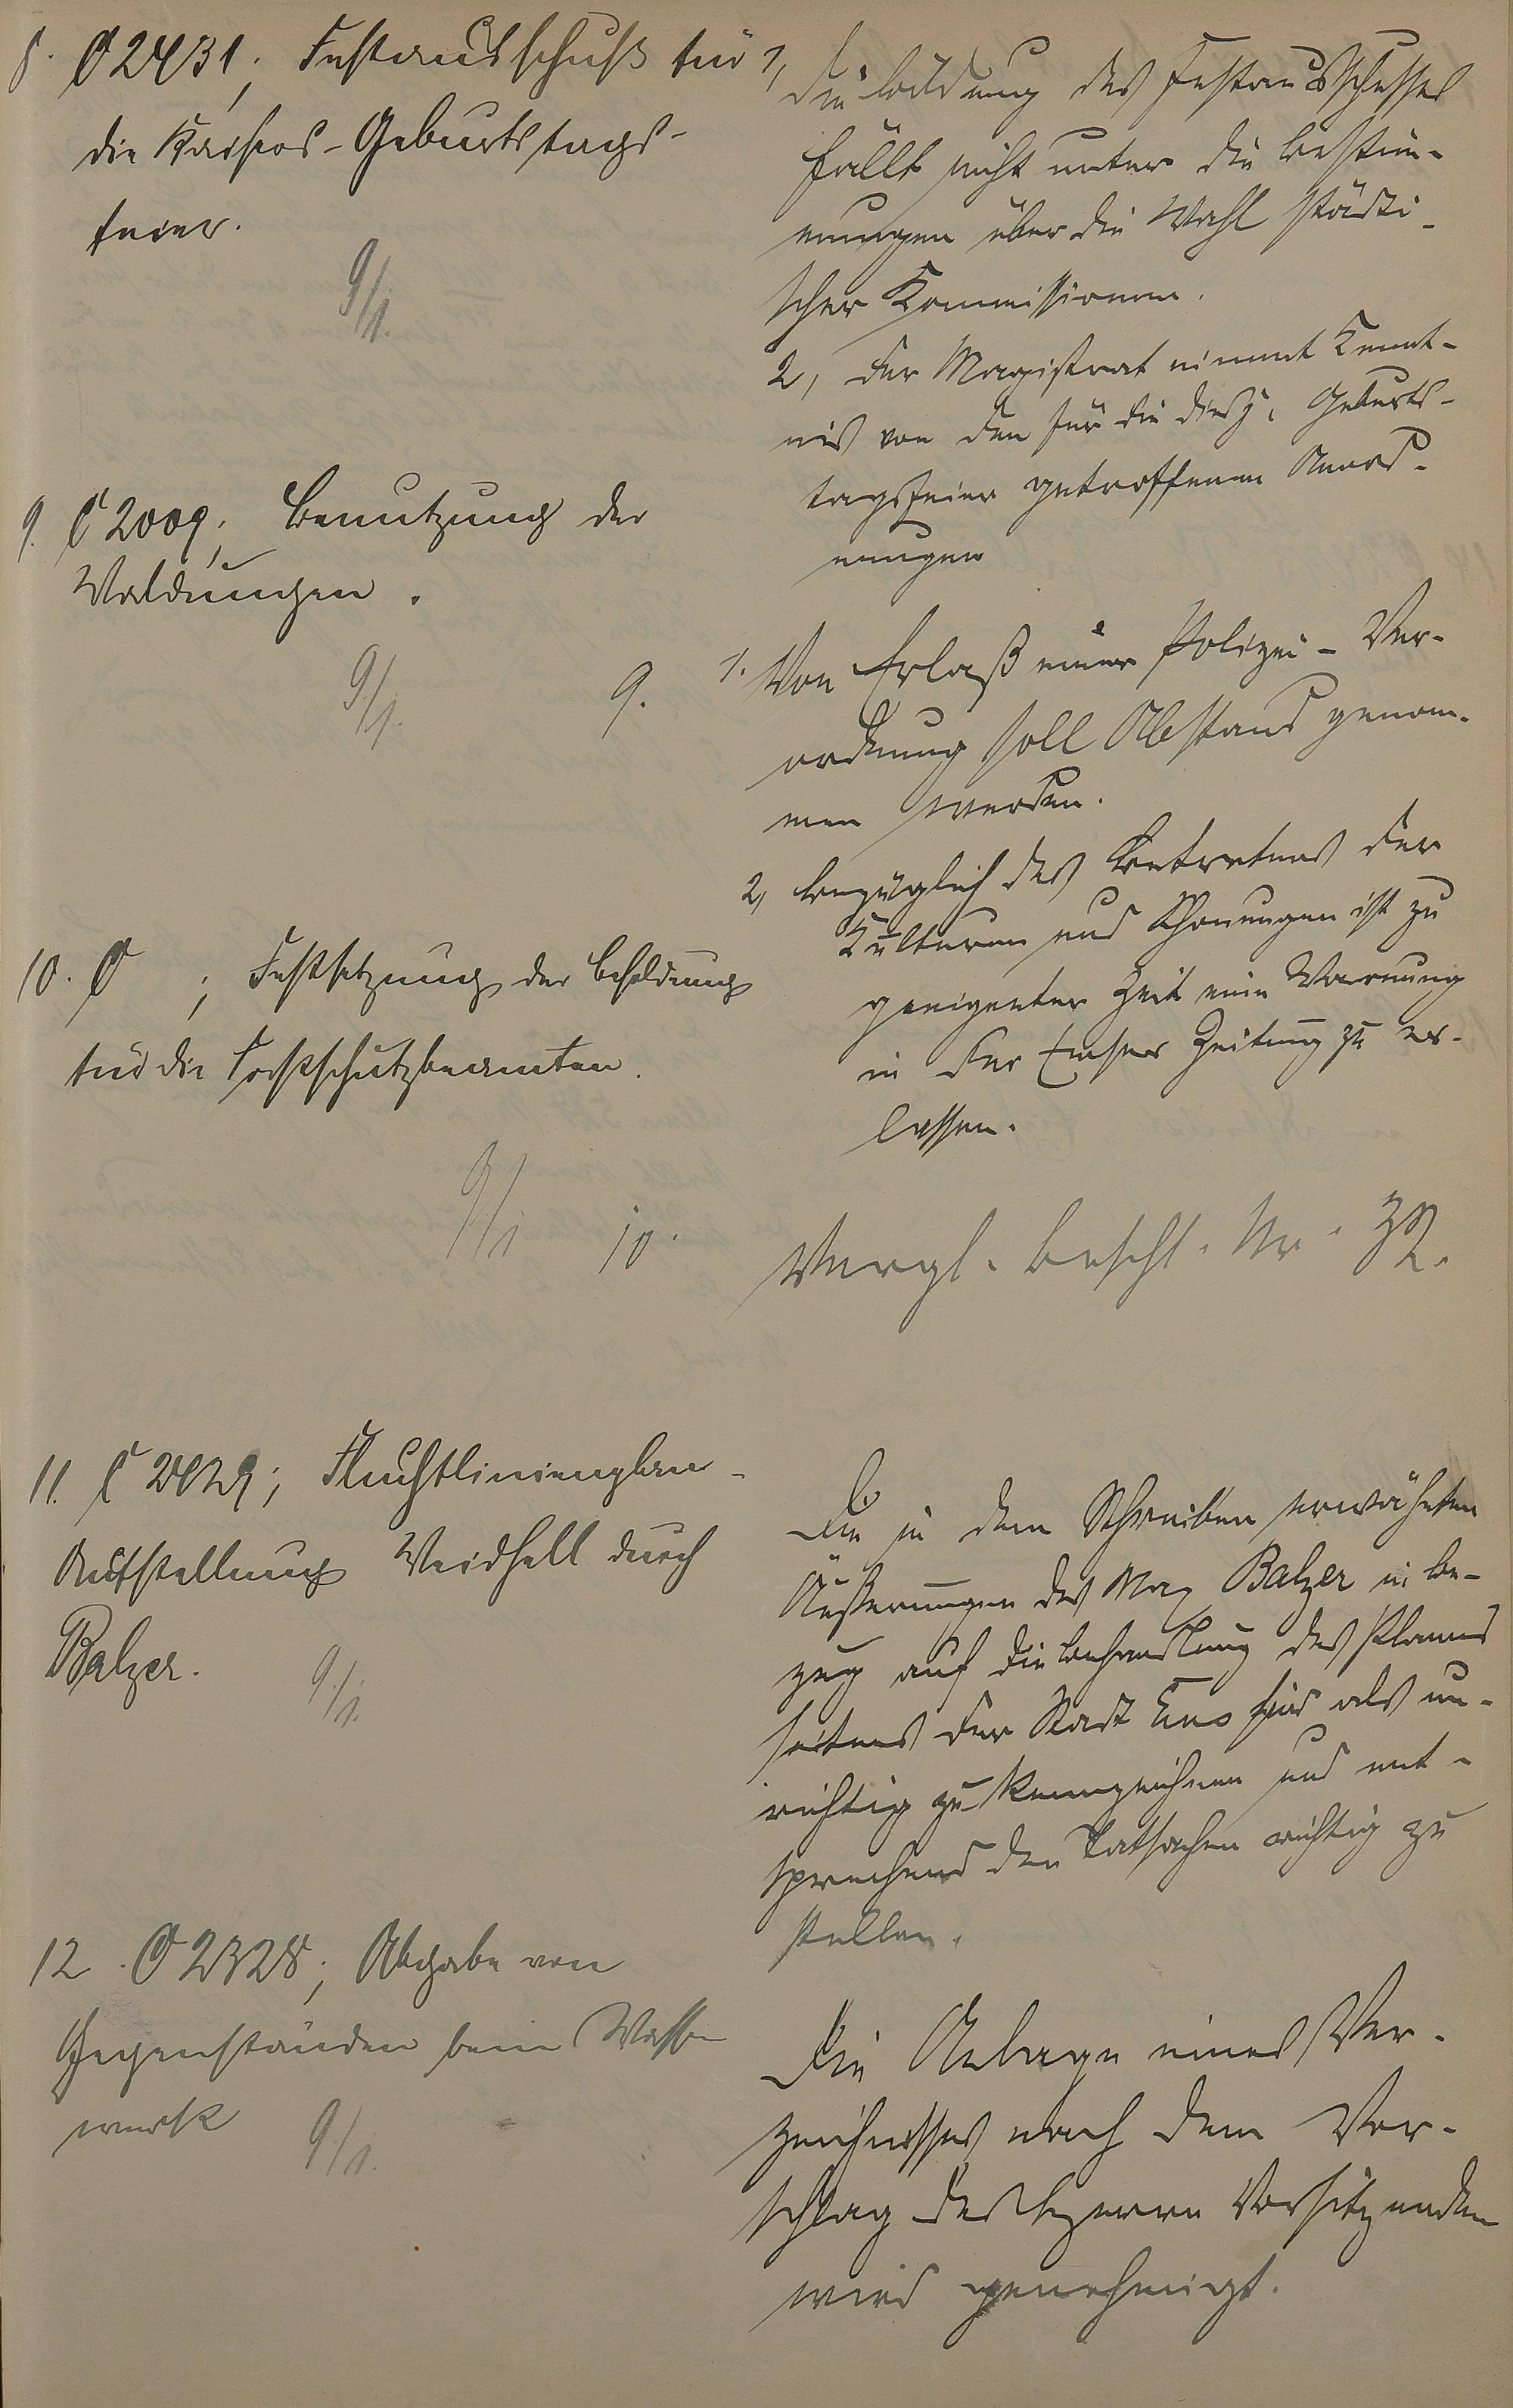 8. C 2431; Festausschuß für
die Kaisers-Geburtstags-
feier.
9/1.
1, Die Bildung des Festausschusses
fällt nicht unter die Bestim-
mungen über die Wahl städti-
scher Kommissionen.
2, Der Magistrat nimmt Kennt-
nis von den für die diesj. Geburts-
tagsfeier getroffenen Anord-
nungen
9. C 2009; Benutzung der
Waldungen.
9/1.
9. 1. Von Erlaß einer Polizei-Ver-
ordnung soll Abstand genom-
men werden.
2, Bezüglich des Betretens der
Kulturen und Schonungen ist zu
geeigneter Zeit eine Warnung
in der Emser Zeitung zu er-
lassen.
10. C ; Festsetzung der Besoldung
für die Forstschutzbeamten.
9/1
10. Vergl. Beschl. Nr. 32.
11. C 2429; Fluchtlinienplan-
Aufstellung Weidhell durch
Balzer.
9/1.
Die in dem Schreiben erwähnten
Äußerungen des Max Balzer in be-
zug auf die Behandlung des Planes
seitens der Stadt Ems sind als un-
richtig zu kennzeichnen und ent-
sprechend den Tatsachen richtig zu
stellen.
12. C 2328; Abgabe von
Gegenständen beim Wasser
werk
9/1.
Die Anlage eines Ver-
zeichnisses nach dem Vor-
schlag des Herrn Vorsitzenden
wird genehmigt.